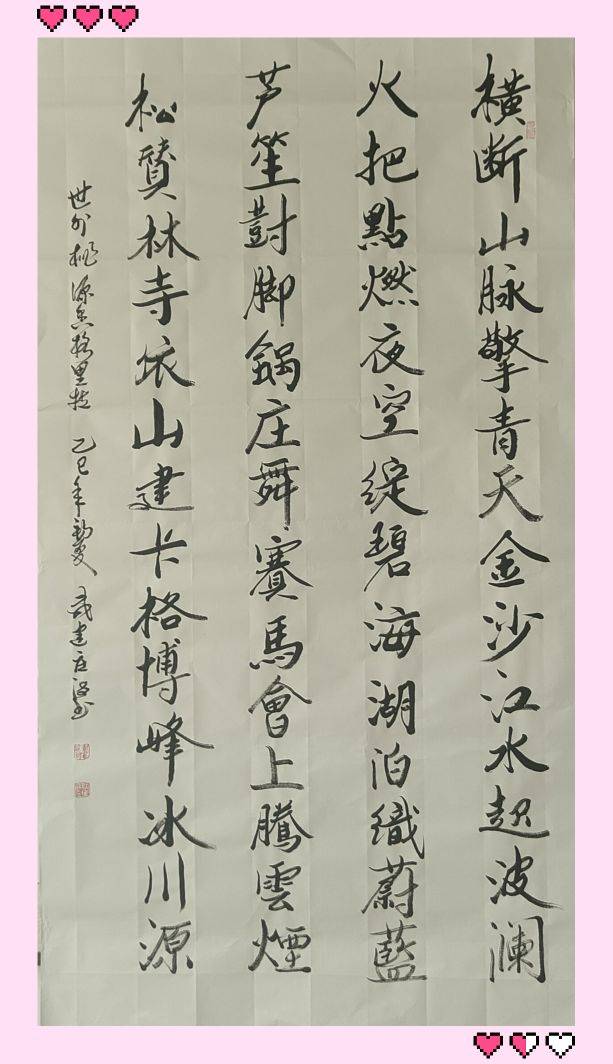 横断山脉擎青天金沙江水起波澜
火把點燃夜空绽碧海湖泊織蔚藍
芦笙對脚锅庄舞賽馬會上騰雲煙
松贊林寺依山建卡格博峰冰川源
世外桃源香格里拉 乙巳年勤夏 武建庄书